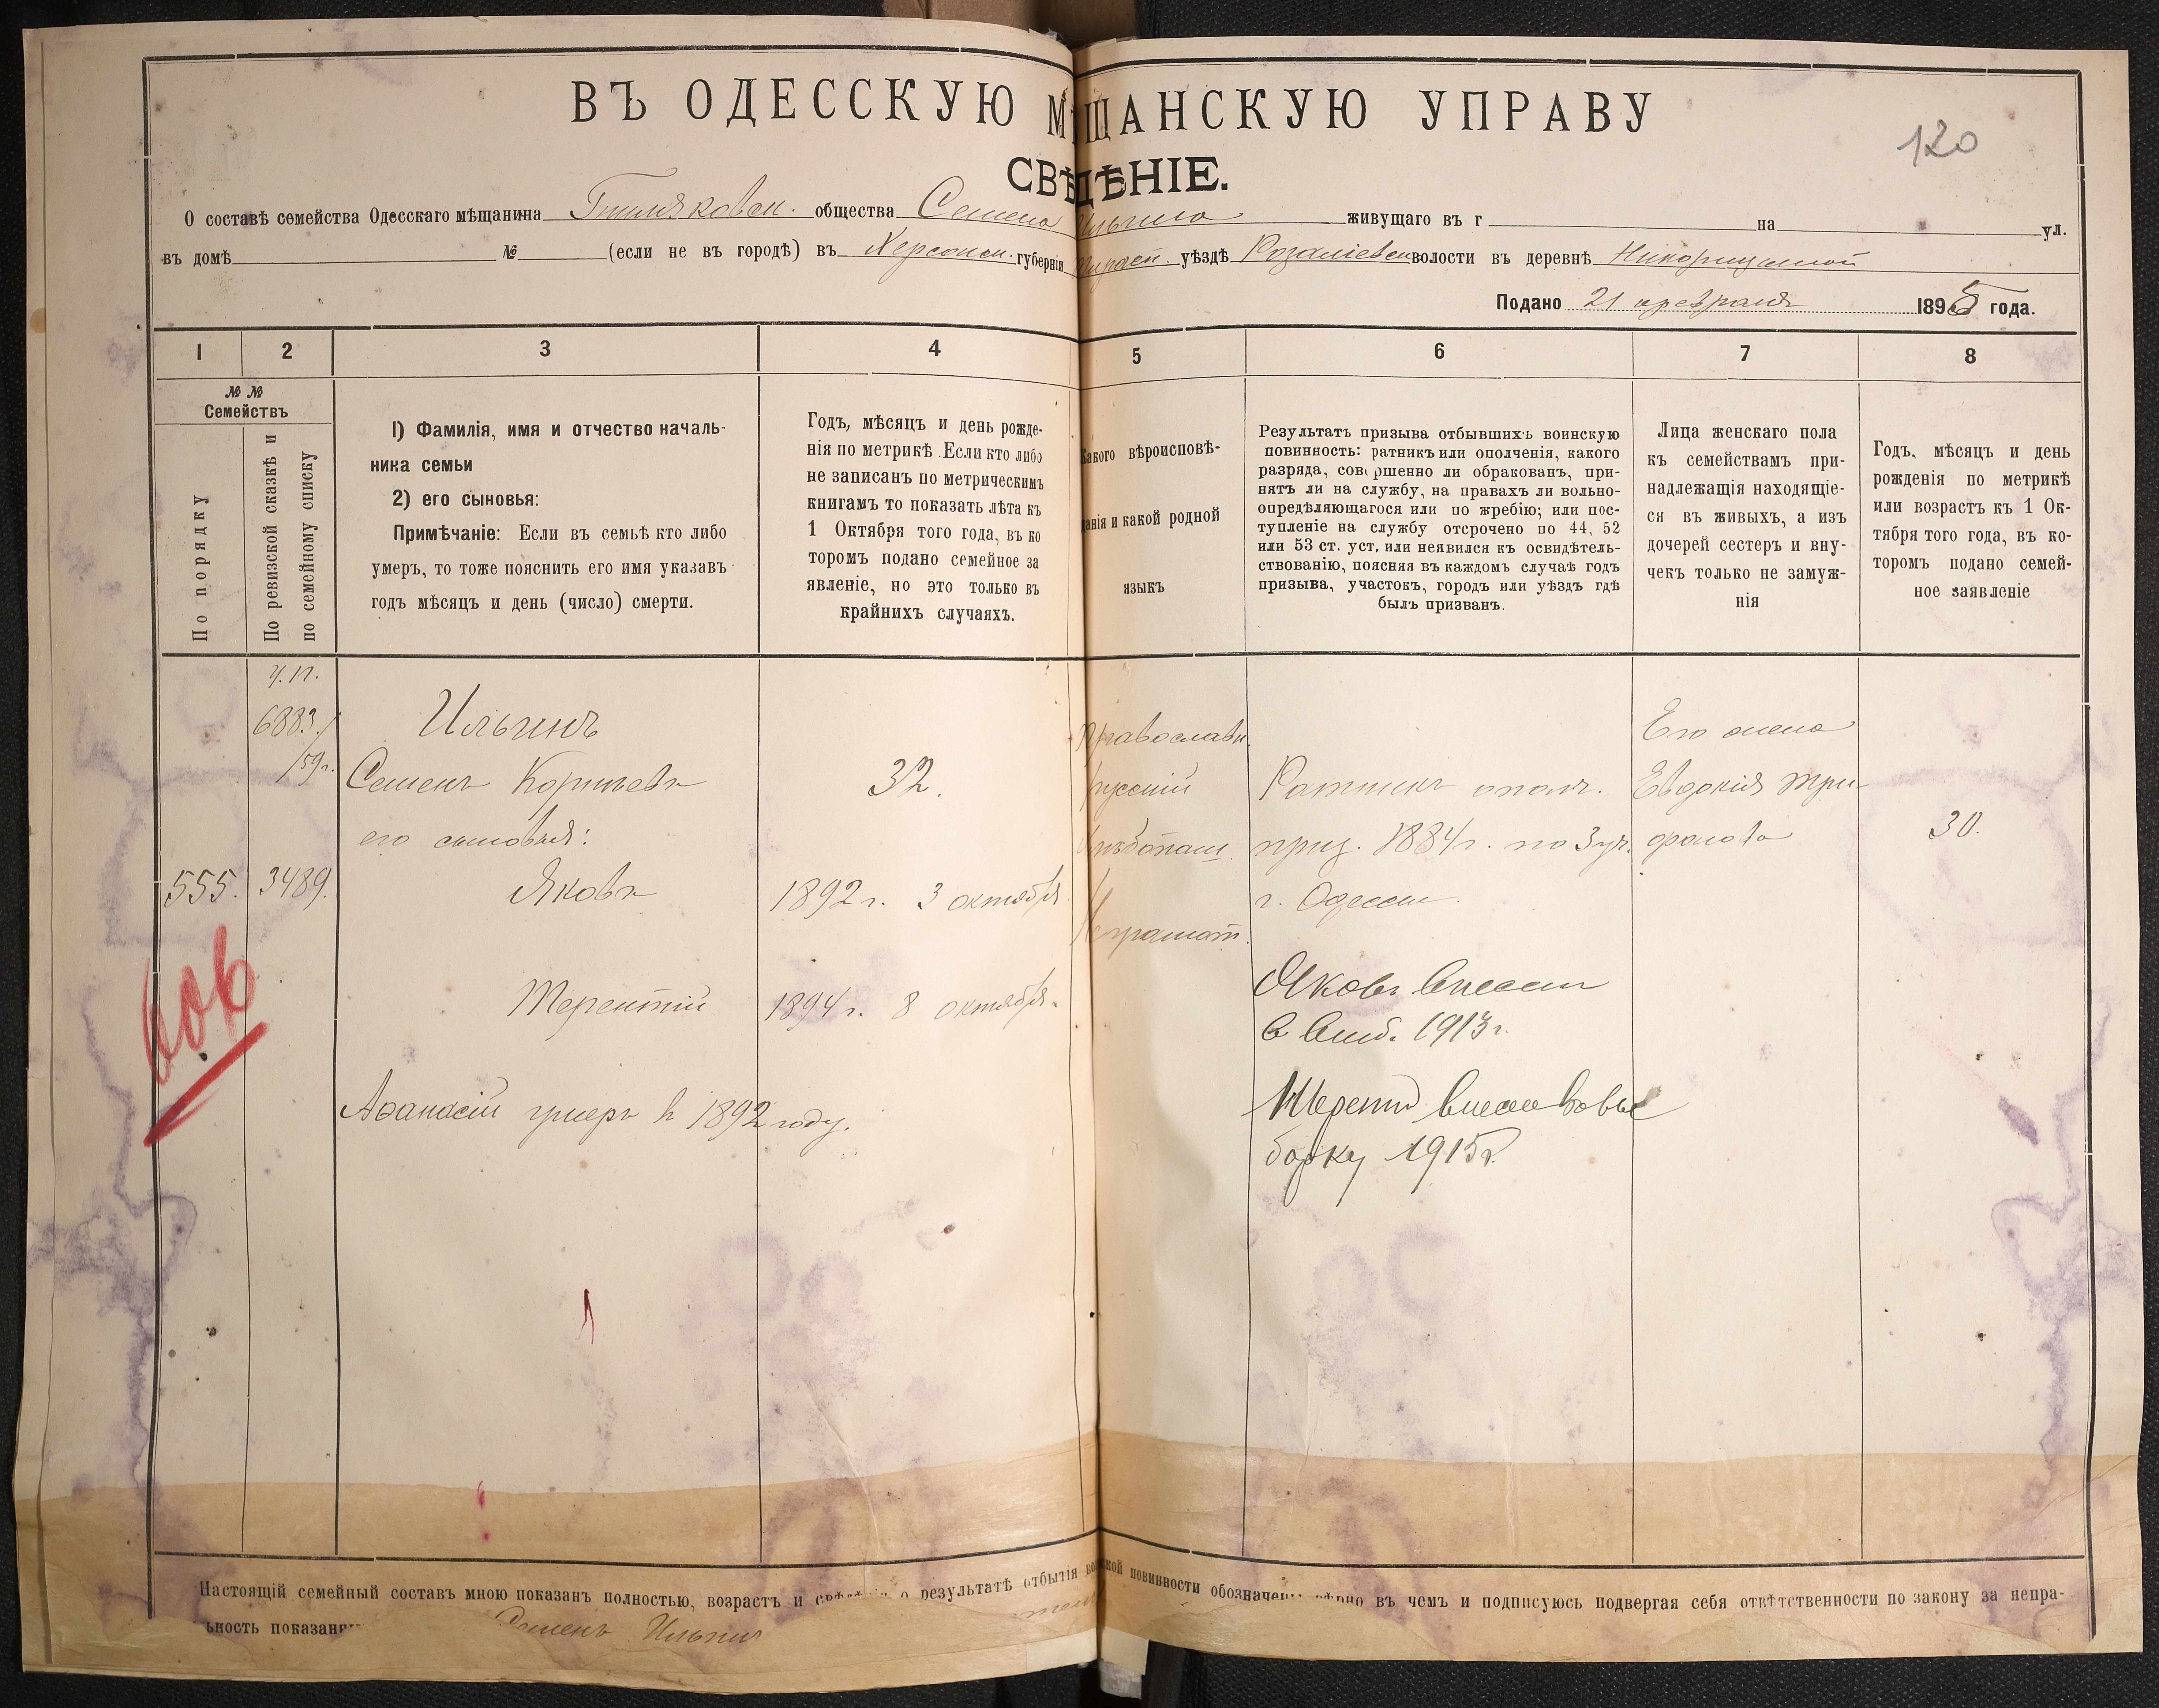 ВЪ ОДЕССКУЮ МѢЩАНСКУЮ УПРАВУ
120
СВѢДѢНІЕ.
О составѣ семейства Одесскаго мѣщанина Гниляковск. общества Семена Ильина живущаго въ г на ул.
въ домѣ № (если не въ городѣ) въ Херсонск. губерніи Тирасп. уѣздѣ Розаліевск волости въ деревнѣ
Подано 21 февраля 1895 года.
1 2 3 4 5 6 7 8
№ №
Семействъ
По порядку
По ревизской сказкѣ и
по семейному списку
1) Фамилія, имя и отчество началь-
ника семьи
2) его сыновья:
Примѣчаніе: Если въ семьѣ кто либо
умеръ, то тоже пояснить его имя указавъ
годъ мѣсяцъ и день (число) смерти.
Годъ, мѣсяцъ и день рожде-
нія по метрикѣ. Если кто либо
не записанъ по метрическимъ
книгамъ то показать лѣта къ
1 Октября того года, въ ко
торомъ подано семейное за
явленіе, но это только въ
крайнихъ случаяхъ.
Какого вѣроисповѣ-
данія и какой родной
языкъ
Результатъ призыва отбывшихъ воинскую
повинность: ратникъ или ополченія, какого
разряда, совершенно ли обракованъ, при-
нятъ ли на службу, на правахъ ли вольно-
опредѣляющагося или по жребію; или пос-
тупленіе на службу отсрочено по 44, 52
или 53 ст. уст, или неявился къ освидѣтель-
ствованію, поясняя въ каждомъ случаѣ годъ
призыва, участокъ, городъ или уѣздъ гдѣ
былъ призванъ.
Лица женскаго пола
къ семействамъ при-
надлежащія находящіе-
ся въ живыхъ, а изъ
дочерей сестеръ и вну-
чекъ только не замуж-
нія
Годъ, мѣсяцъ и день
рожденія по метрикѣ
или возрастъ къ 1 Ок-
тября того года, въ ко-
торомъ подано семей-
ное заявленіе
6883
/59 г.
555. 3489.
Ильинъ
Семенъ Корнѣевъ
его сыновья:
Яковъ
Терентій
Аѳанасій умеръ въ 1892 году.
32.
1892 г. 3 октября
1894 г. 8 октября.
Православн.
русскій
хлѣбопаш.
Неграмот.
Ратникъ ополч.
приз. 1884 г. по 3 уч.
г. Одессы
Яковъ внесенъ
в 1913 г.
Терентій внесен в выб
борку 1915 г.
Его жена
Евдокія Три-
фонова
30.
Настоящій семейный составъ мною показанъ полностью, возрастъ и о результатѣ отбытія повинности обозначены вѣрно въ чемъ и подписуюсь подвергая себя отвѣтственности по закону за непра-
Семенъ Ильинъ